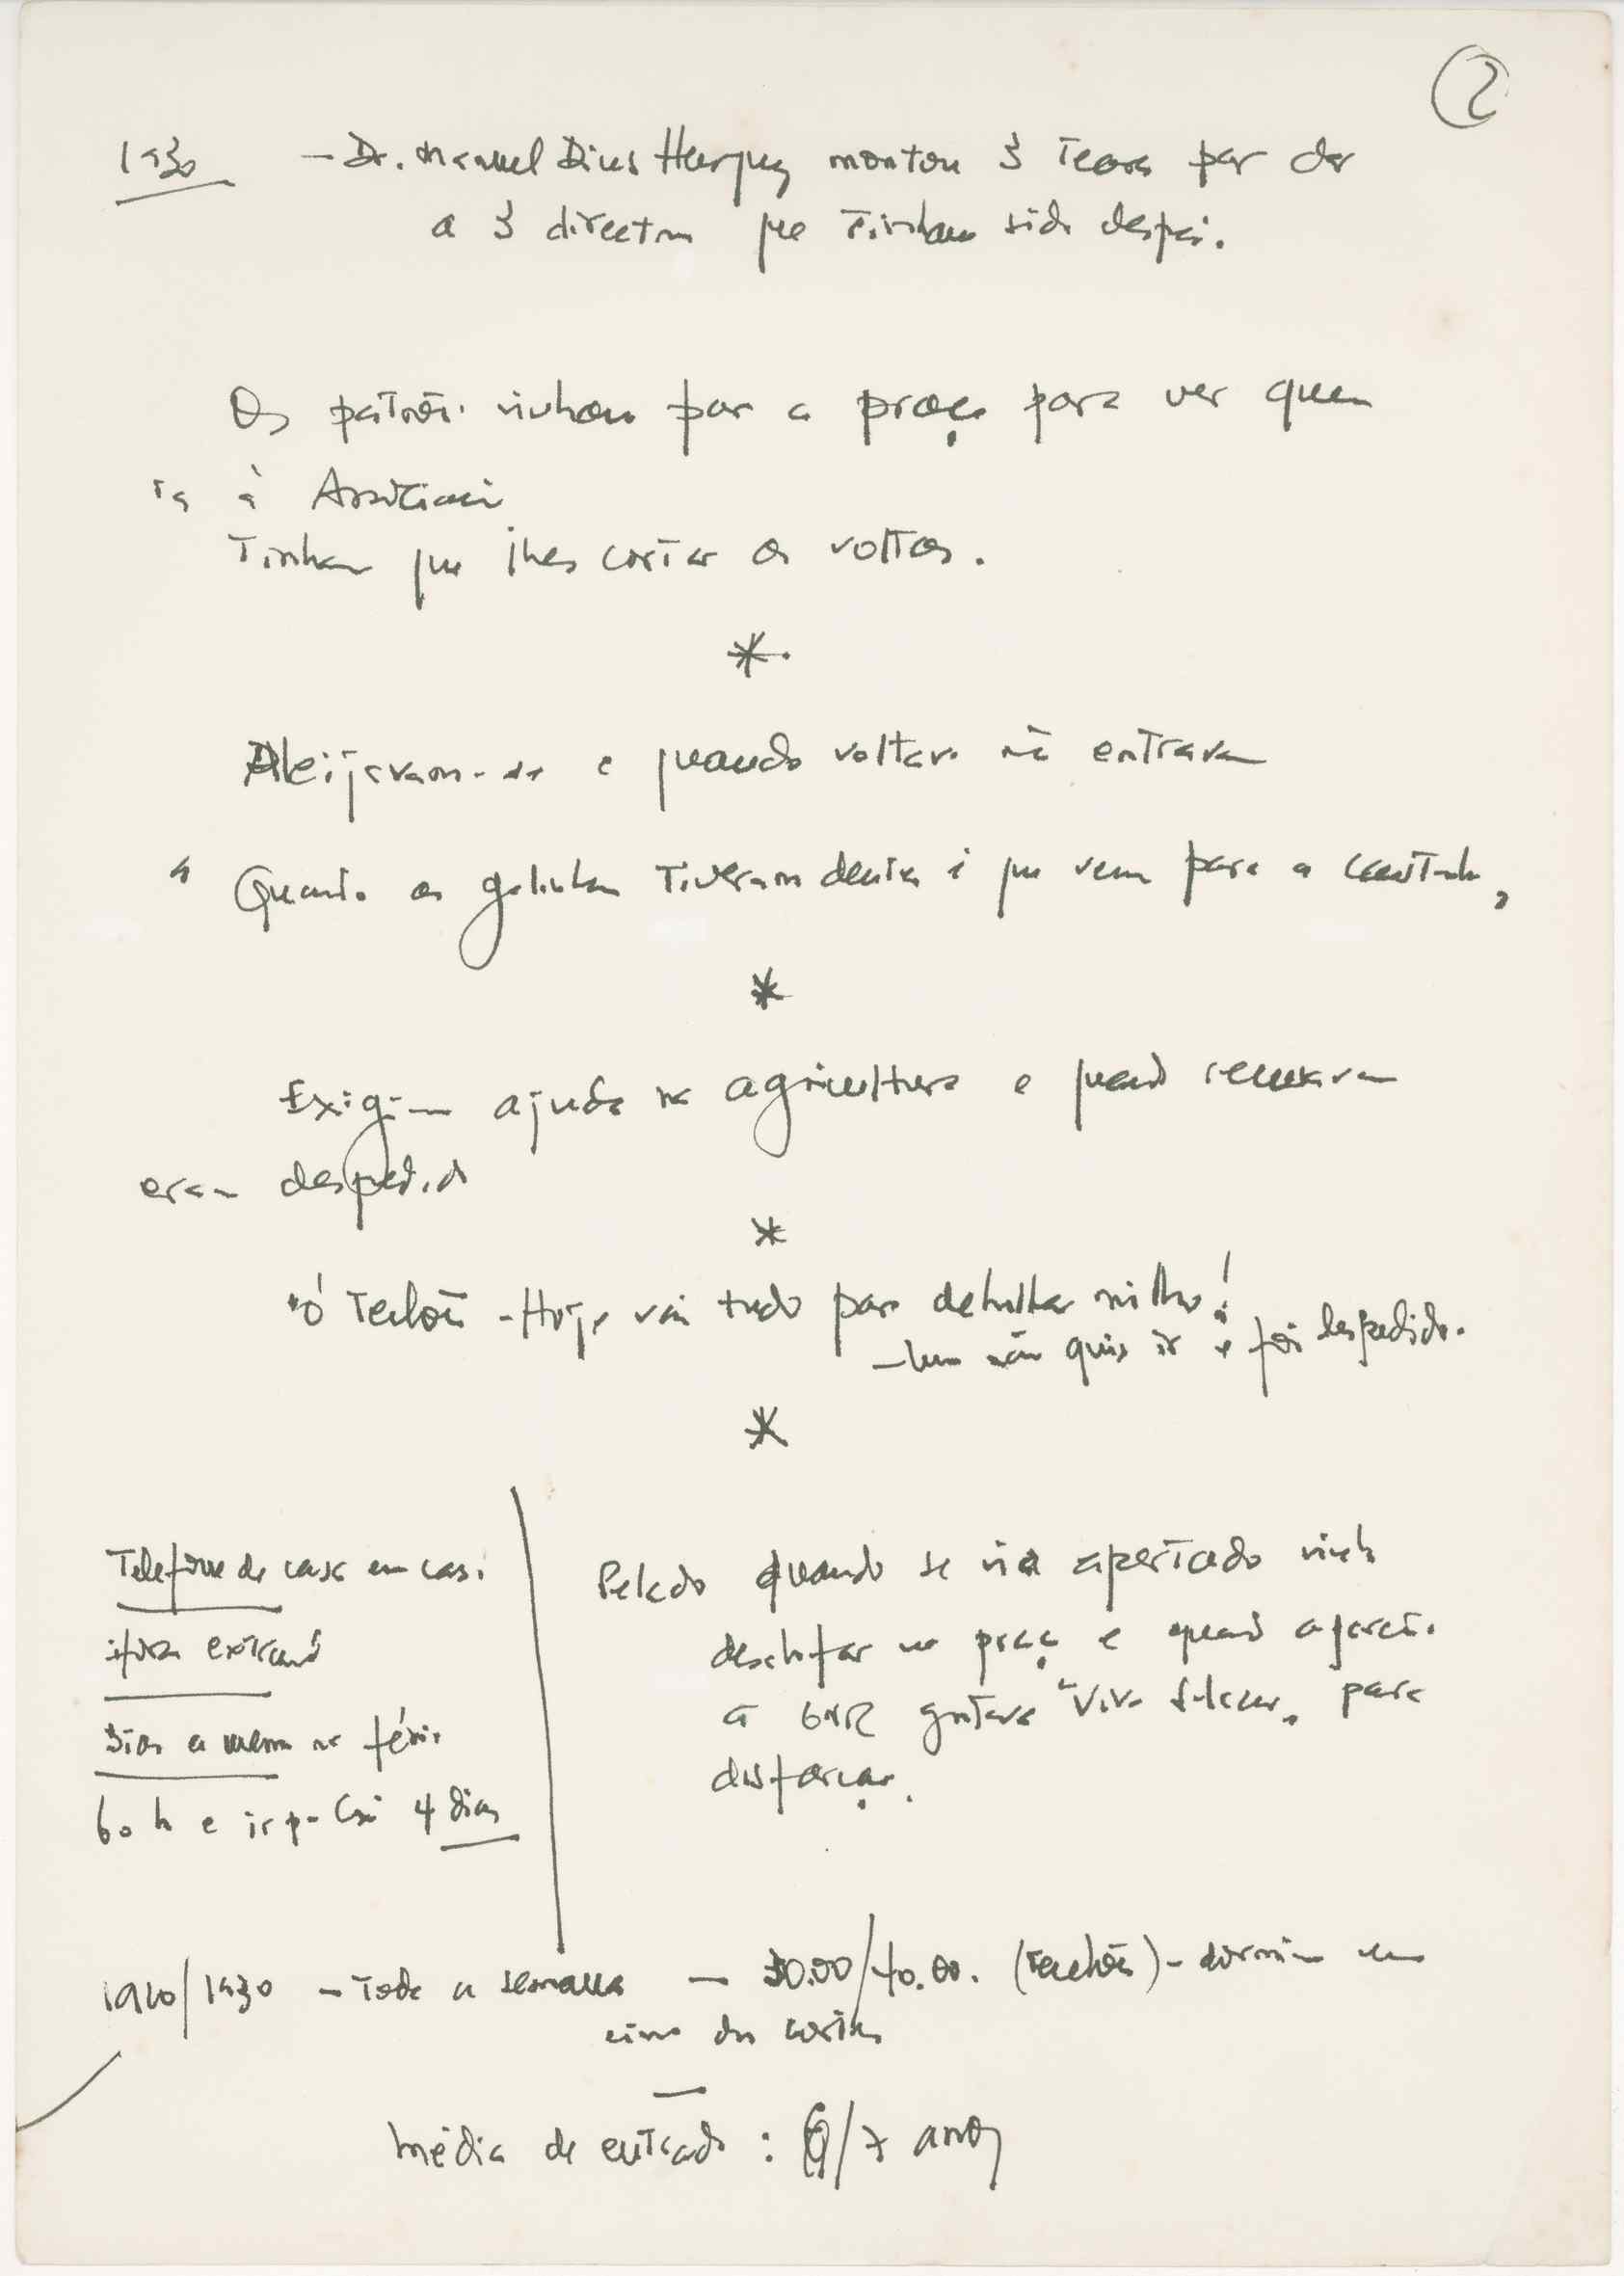 2
1930 - Dr. Manuel Dias      montou 3 Teares para dar
a 3 directores que Tinham sido desped.
Os patrões vinham para a praça para ver quem
ia à Associação
Tinham que lhes cortar as voltas.
*
Aleijavam-se e quando voltavam não entravam
"Quando as galinhas Tiverem dentes é que vens para a
*
Exigiam ajuda na agricultura e quando recusavam
eram despedidos
*
"Ó Tecelões - Hoje vai tudo para debulhar milho!
- Um não quis ir e foi despedido.
*
Telefone de casa em casa
Pelado quando se via apertado vinha
desabafar na praça e quando aparecia
a GNR gritava "Viva Salazar" para
disfarçar.
3 dias a menos nas férias
60 h e ir p.     4 dias
1920/1930 - Toda a semana - 30.00/40.00. (Tecelões) - dormiam em
cima dos cortes
média de entrada: 6/7 anos